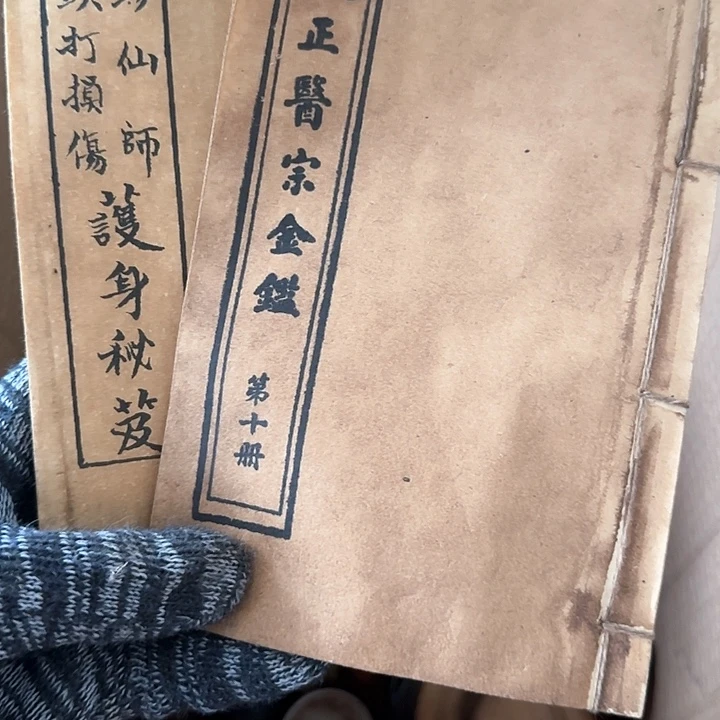 正醫宗金鑑
第十冊
仙師
打損傷
護身秘笈